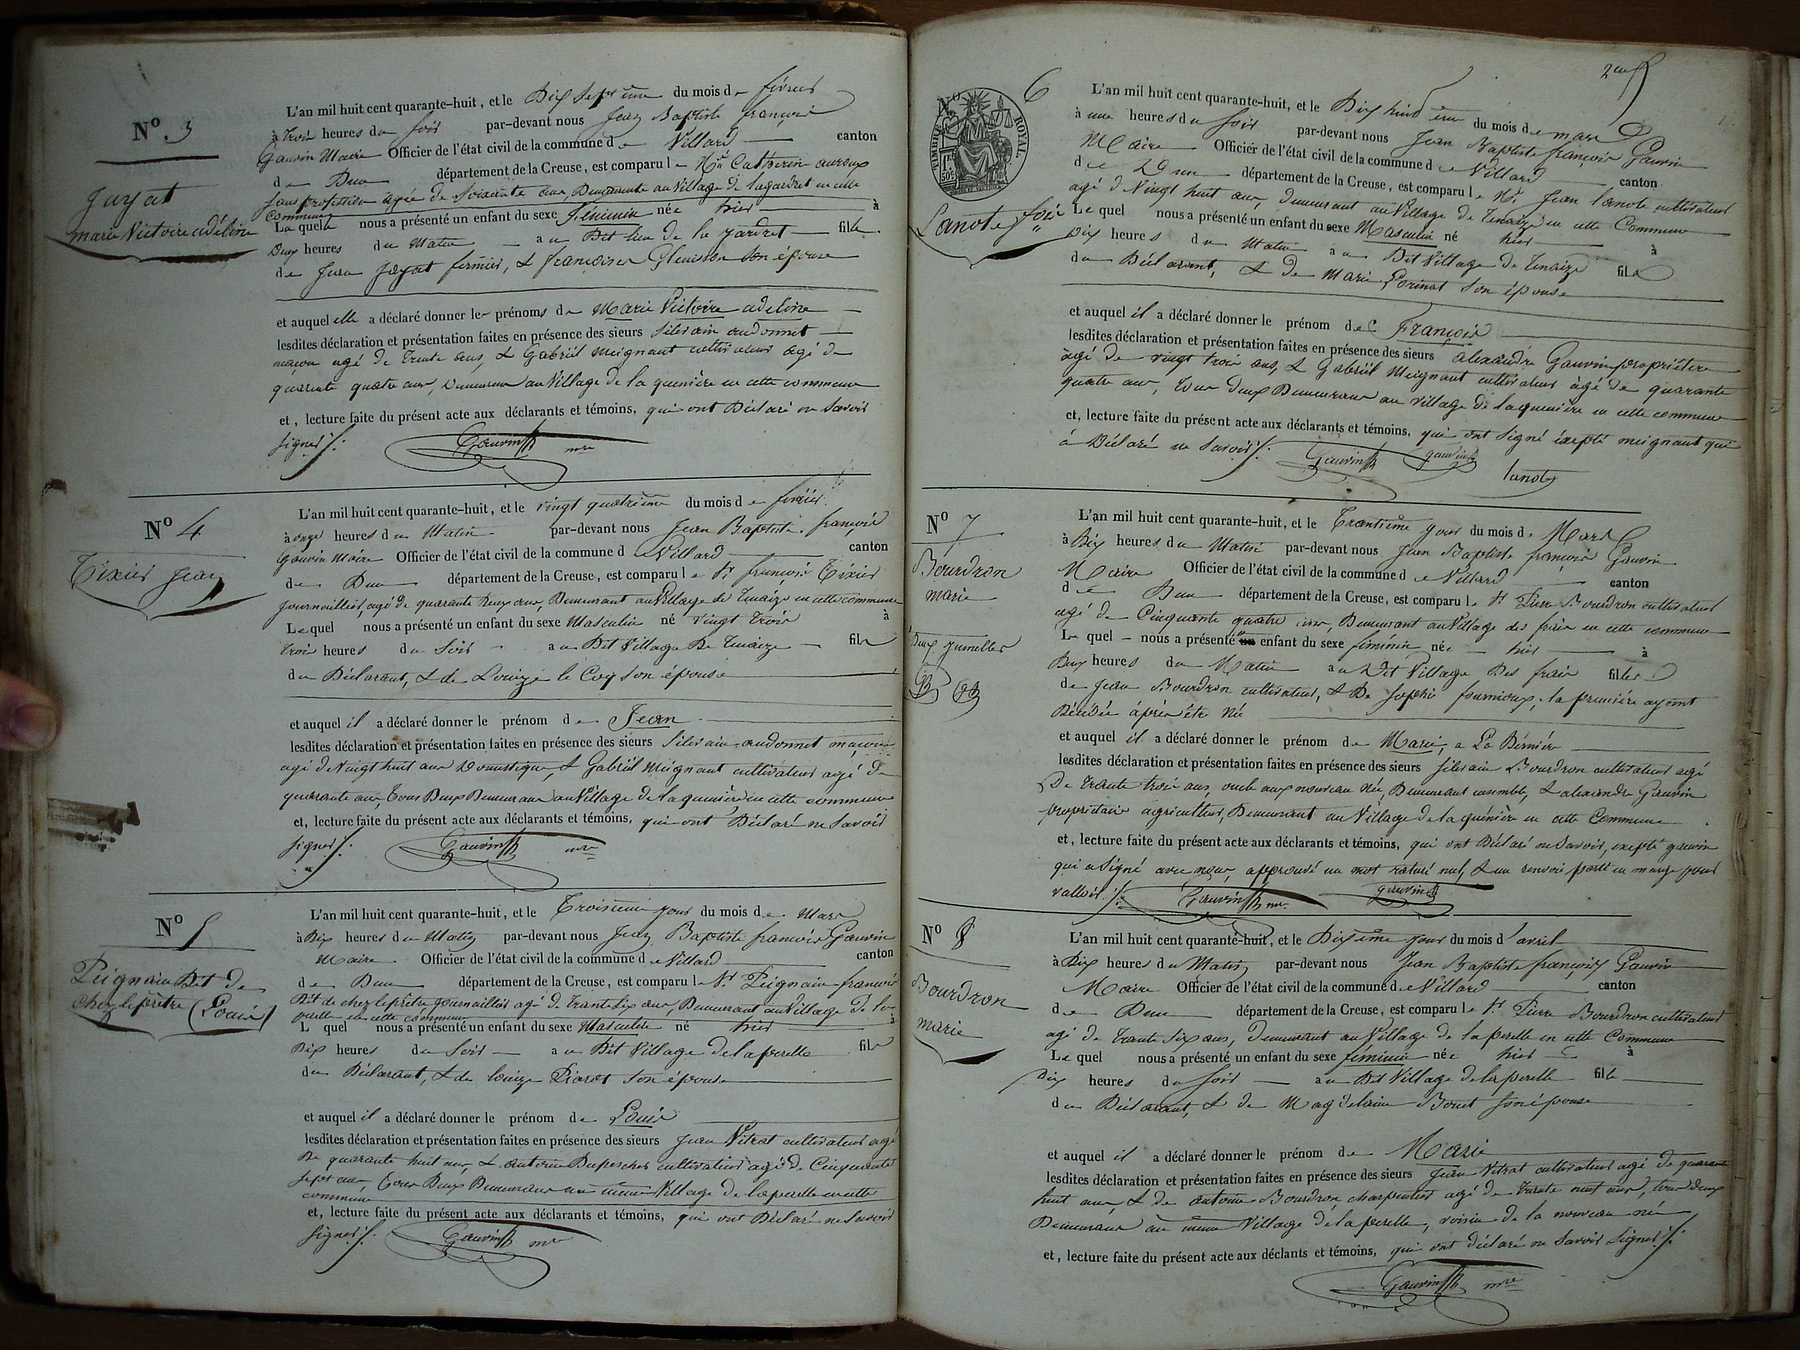 N° 3
Jayat
marie Victoire adeline
L'an mil huit cent quarante-huit, et le Dix septième du mois de février
à trois heures du soir par-devant nous Jean Baptiste françois
Gauvin Maire Officier de l'état civil de la commune de Villard canton
de Dun département de la Creuse, est comparu le Catherin auroux
sans profession agée de soixante ans, Demeurante au village de en cette
Commune
La quelle nous a présenté un enfant du sexe féminin née hier à
Deux heures du Matin au Dit lieu de la fille
de Jean Jayat fermier, & françoise son épouse
et auquel elle a déclaré donner les prénoms de Marie Victoire adeline
lesdites déclaration et présentation faites en présence des sieurs Silvain audonnet
maçon agé de Trente ans, & Gabriël Meignant cultivateur agé de
quarante quatre ans, Demeurans au Village de la quenière en cette commune
et, lecture faite du présent acte aux déclarants et témoins, qui ont Déclaré ne Savoir
signer ./.
Gauvin mre
N° 4
Tixier Jean
L'an mil huit cent quarante-huit, et le vingt quatrième du mois de février
à onze heures du Matin par-devant nous Jean Baptiste françois
Gauvin Maire Officier de l'état civil de la commune de Villard canton
de Dun département de la Creuse, est comparu le Sr françois Tixier
journaillier, agé de quarante Deux ans, Demeurant au Village de Tenaize en cette commune
Le quel nous a présenté un enfant du sexe Masculin né vingt trois à
trois heures du soir au Dit Village De Tenaize fils
du Déclarant, & de Louize le Coq son épouse
et auquel il a déclaré donner le prénom de Jean
lesdites déclaration et présentation faites en présence des sieurs Silvain audonnet maçon
agé de Vingt huit ans Domestique, & Gabriël Meignant cultivateur agé de
quarante ans Tous Deux Demeurans au Village de la quenière en cette commune
et, lecture faite du présent acte aux déclarants et témoins, qui ont Déclaré ne Savoir
signer ./.
Gauvin mre
N° 5
Peignain Dit de
chez le prêtre (Louis)
L'an mil huit cent quarante-huit, et le Troisième jour du mois de Mars
à Dix heures du Matin par-devant nous Jean Baptiste françois Gauvin
Maire Officier de l'état civil de la commune de Villard canton
de Dun département de la Creuse, est comparu le Sr Peignain françois
Dit de chez le prêtre journaillier agé de Trante six ans, Demeurant au Village de la
perelle en cette commune
L quel nous a présenté un enfant du sexe Masculin né hier à
Dix heures du Soir au Dit Village de la perelle fils
du Déclarant, & de louize Piarat son épouse
et auquel il a déclaré donner le prénom de Louis
lesdites déclaration et présentation faites en présence des sieurs Jean Vitrat cultivateur agé
De quarante huit ans, & antoine cultivateur agé de Cinquante
sept ans Tous Deux Demeurans au même Village de la perelle en cette
commune
et, lecture faite du présent acte aux déclarants et témoins, qui ont Déclaré ne Savoir
signer ./.
Gauvin mre
N° 6
TIMBRE ROYAL
Lanote fois
L'an mil huit cent quarante-huit, et le Dix huitième du mois de mars
à une heures du soir par-devant nous Jean Baptiste françois Gauvin
Maire Officier de l'état civil de la commune de Villard canton
de Dun département de la Creuse, est comparu le Sr Jean lanote cultivateur
agé de Vingt huit ans, demeurant au Village de Tenaize en cette Commune
Le quel nous a présenté un enfant du sexe Masculin né hier à
Dix heures du Matin au Dit Village De Tenaize fils
du Déclarant, & De Marie Lorinat son épouse
et auquel il a déclaré donner le prénom de François
lesdites déclaration et présentation faites en présence des sieurs alexandre Gauvin propriétere
agé de vingt trois ans, & Gabriël Meignant cultivateur agé de quarante
quatre ans, tous deux Demeurans au village de la quenière en cette commune
et, lecture faite du présent acte aux déclarants et témoins, qui ont signé éxepté meignant qui
à Déclaré ne savoir ./.
Gauvin gauvin lanote
N° 7
Bourdron
marie
Deux jumelles
L'an mil huit cent quarante-huit, et le Trantième jour du mois de Mars
à Dix heures du Matin par-devant nous Jean Baptiste françois Gauvin
Maire Officier de l'état civil de la commune de Villard canton
de Dun département de la Creuse, est comparu le Sr Pierre Bourdron cultivateur
agé de Cinquante quatre ans, Demeurant au Village des frais en cette commune
Le quel nous a présenté un enfant du sexe féminin née hier à
Deux heures du Matin au Dit Village Des frais filles
de Jean Bourdron cultivateur, & De Sophie fournioux, la première ayant
Décédée áprès être née
et auquel il a déclaré donner le prénom de Marie, a La Dernière
lesdites déclaration et présentation faites en présence des sieurs Silvain Bourdron cultivateur agé
De trante trois ans, oncle aux nouveau née, Demeurant ensemble, & alexandre Gauvin
propriétaire agriculteur, Demeurant au Village de la quénière en cette Commune
et, lecture faite du présent acte aux déclarants et témoins, qui ont Déclaré ne Savoir, exepté gauvin
qui a signé avec nous, approuvé un mot raturé nul, & un renvoi porté en marge pour
valloir ./.
Gauvin mre gauvin
N° 8
Bourdron
marie
L'an mil huit cent quarante-huit, et le Dixième jour du mois d'avril
à Dix heures du Matin par-devant nous Jean Baptiste françois Gauvin
Maire Officier de l'état civil de la commune de Villard canton
de Dun département de la Creuse, est comparu le Sr Pierre Bourdron cultivateur
agé de Trante six ans, demeurant au Village de la perelle en cette Commune
Le quel nous a présenté un enfant du sexe féminin née hier à
Dix heures du soir au Dit Village de la perelle fille
du Déclarant, & de Magdelaine Bouet son épouse
et auquel il a déclaré donner le prénom de Marie
lesdites déclaration et présentation faites en présence des sieurs Jean Vitrat cultivateur agé de quarante
huit ans, & de antoine Bourdron, charpentier agé de Trante neuf ans, tous deux
Demeurans au même Village de la perelle, voisin de la nouveau née
et, lecture faite du présent acte aux déclants et témoins, qui ont déclaré ne Savoir signer ./.
Gauvin mre